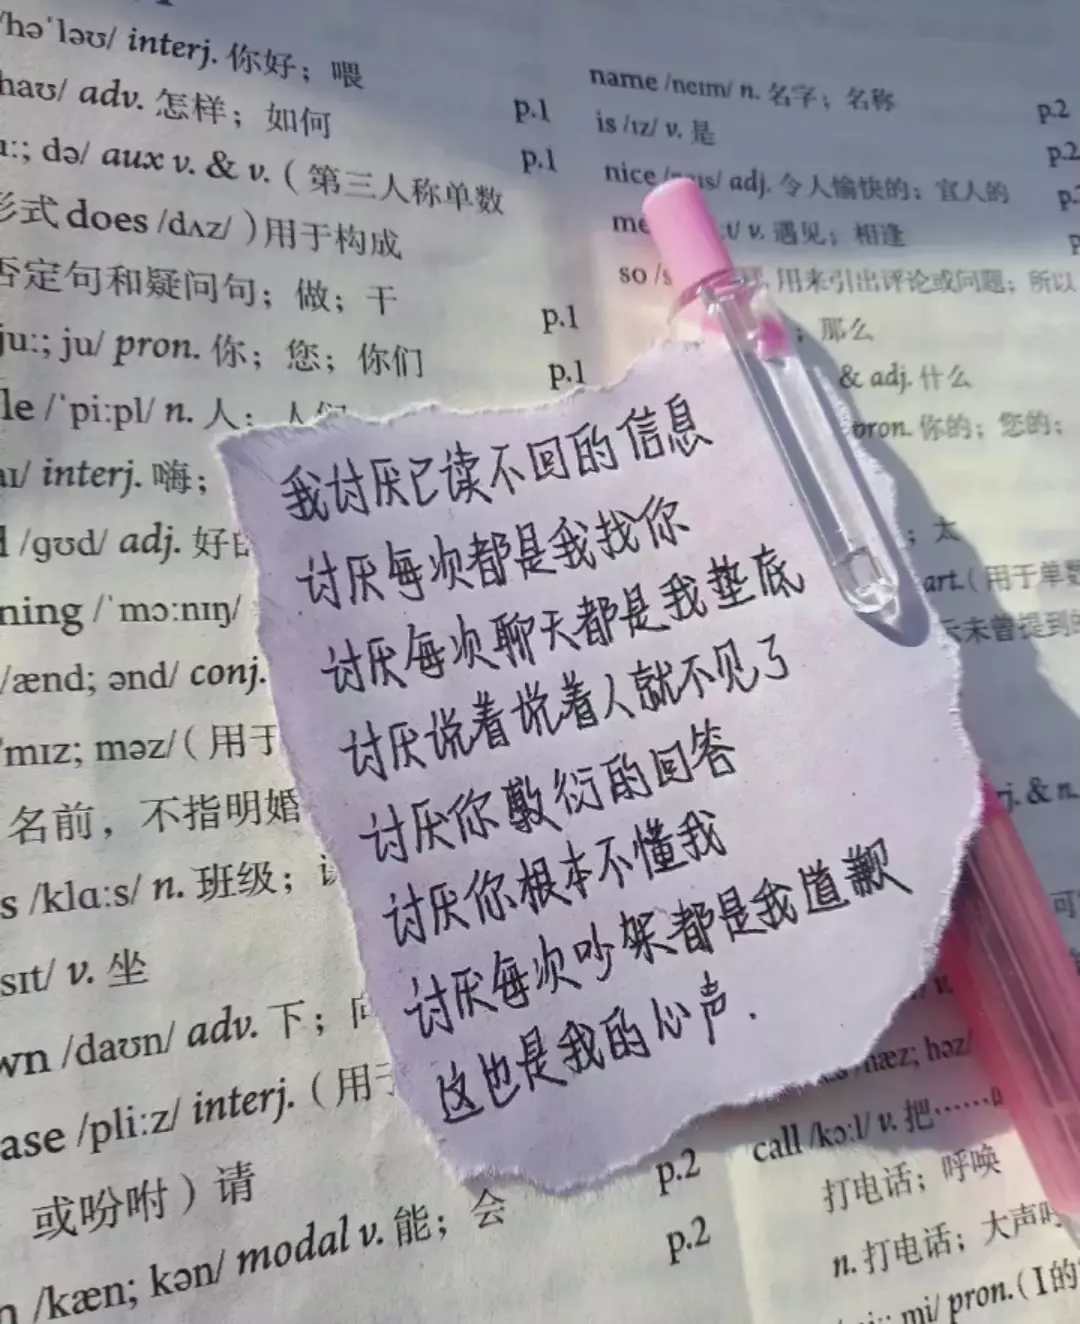 /həˈləʊ/ interj. 你好；喂
haʊ/ adv. 怎样；如何 p.1
ɪː; də/ aux v. & v.（第三人称单数 p.1
形式 does /dʌz/ ）用于构成
否定句和疑问句；做；干 p.1
juː; ju/ pron. 你；您；你们 p.1
le /ˈpiːpl/ n. 人；人们
aɪ/ interj. 嗨；
d /ɡʊd/ adj. 好的
ning /ˈmɔːnɪŋ/
/ænd; ənd/ conj.
ˈmɪz; məz/（用于
名前，不指明婚
s /klɑːs/ n. 班级；
sɪt/ v. 坐
wn /daʊn/ adv. 下；向
ase /pliːz/ interj.（用于
或吩咐）请 p.2
n /kæn; kən/ modal v. 能；会 p.2
name /neɪm/ n. 名字；名称 p.2
is /ɪz/ v. 是 p.2
nice adj. 令人愉快的；宜人的
v. 遇见；相逢
so 用来引出评论或问题；所以
；那么
& adj. 什么
pron. 你的；您的；
；太
art.（用于单数
未曾提到的
我讨厌已读不回的信息
讨厌每次都是我找你
讨厌每次聊天都是我垫底
讨厌说着说着人就不见了
讨厌你敷衍的回答
讨厌你根本不懂我
讨厌每次吵架都是我道歉
这也是我的心声.
& n.
可
hæz; həz/
call /kɔːl/ v. 把……
打电话；呼唤
n. 打电话；大声呼
mi/ pron.（I的